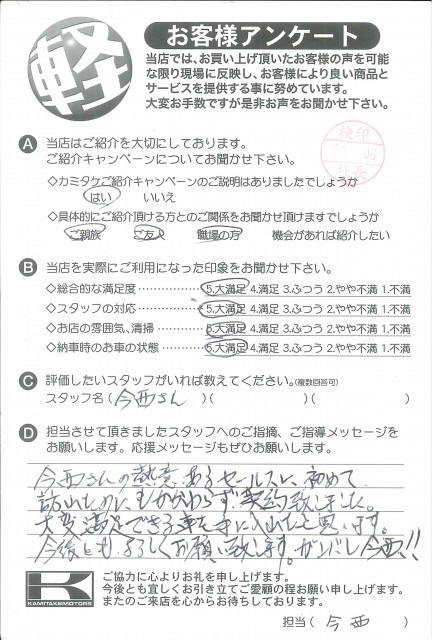 軽
お客様アンケート
当店では、お買い上げ頂いたお客様の声を可能
な限り現場に反映し、お客様により良い商品と
サービスを提供する事に努めています。
大変お手数ですが是非お声をお聞かせ下さい。
A 当店はご紹介を大切にしております。
ご紹介キャンペーンについてお聞かせ下さい。
検印
◇カミタケご紹介キャンペーンのご説明はありましたでしょうか
はい いいえ
◇具体的にご紹介頂ける方とのご関係をお聞かせ頂けますでしょうか
ご親族 ご友人 職場の方 機会があれば紹介したい
B 当店を実際にご利用になった印象をお聞かせ下さい。
◇総合的な満足度 ……………… 5.大満足 4.満足 3.ふつう 2.やや不満 1.不満
◇スタッフの対応 ……………… 5.大満足 4.満足 3.ふつう 2.やや不満 1.不満
◇お店の雰囲気、清掃 ………… 5.大満足 4.満足 3.ふつう 2.やや不満 1.不満
◇納車時のお車の状態 ………… 5.大満足 4.満足 3.ふつう 2.やや不満 1.不満
C 評価したいスタッフがいれば教えてください。(複数回答可)
スタッフ名 ( 今西さん )( )( )
D 担当させて頂きましたスタッフへのご指摘、ご指導メッセージを
お願いします。応援メッセージもぜひお願いします。
今西さんの熱意あるセールスに、初めて
訪出たのにもかかわらず契約致しました。
大変満足できる車を手に入れたと思います。
今後とも、よろしくお願い致します。ガンバレ今西!!
K
KAMITAKEMOTORS
ご協力に心よりお礼を申し上げます。
今後とも宜しくお引き立てご愛顧の程お願い申し上げます。
またのご来店を心からお待ちしております。
担当 ( 今西 )